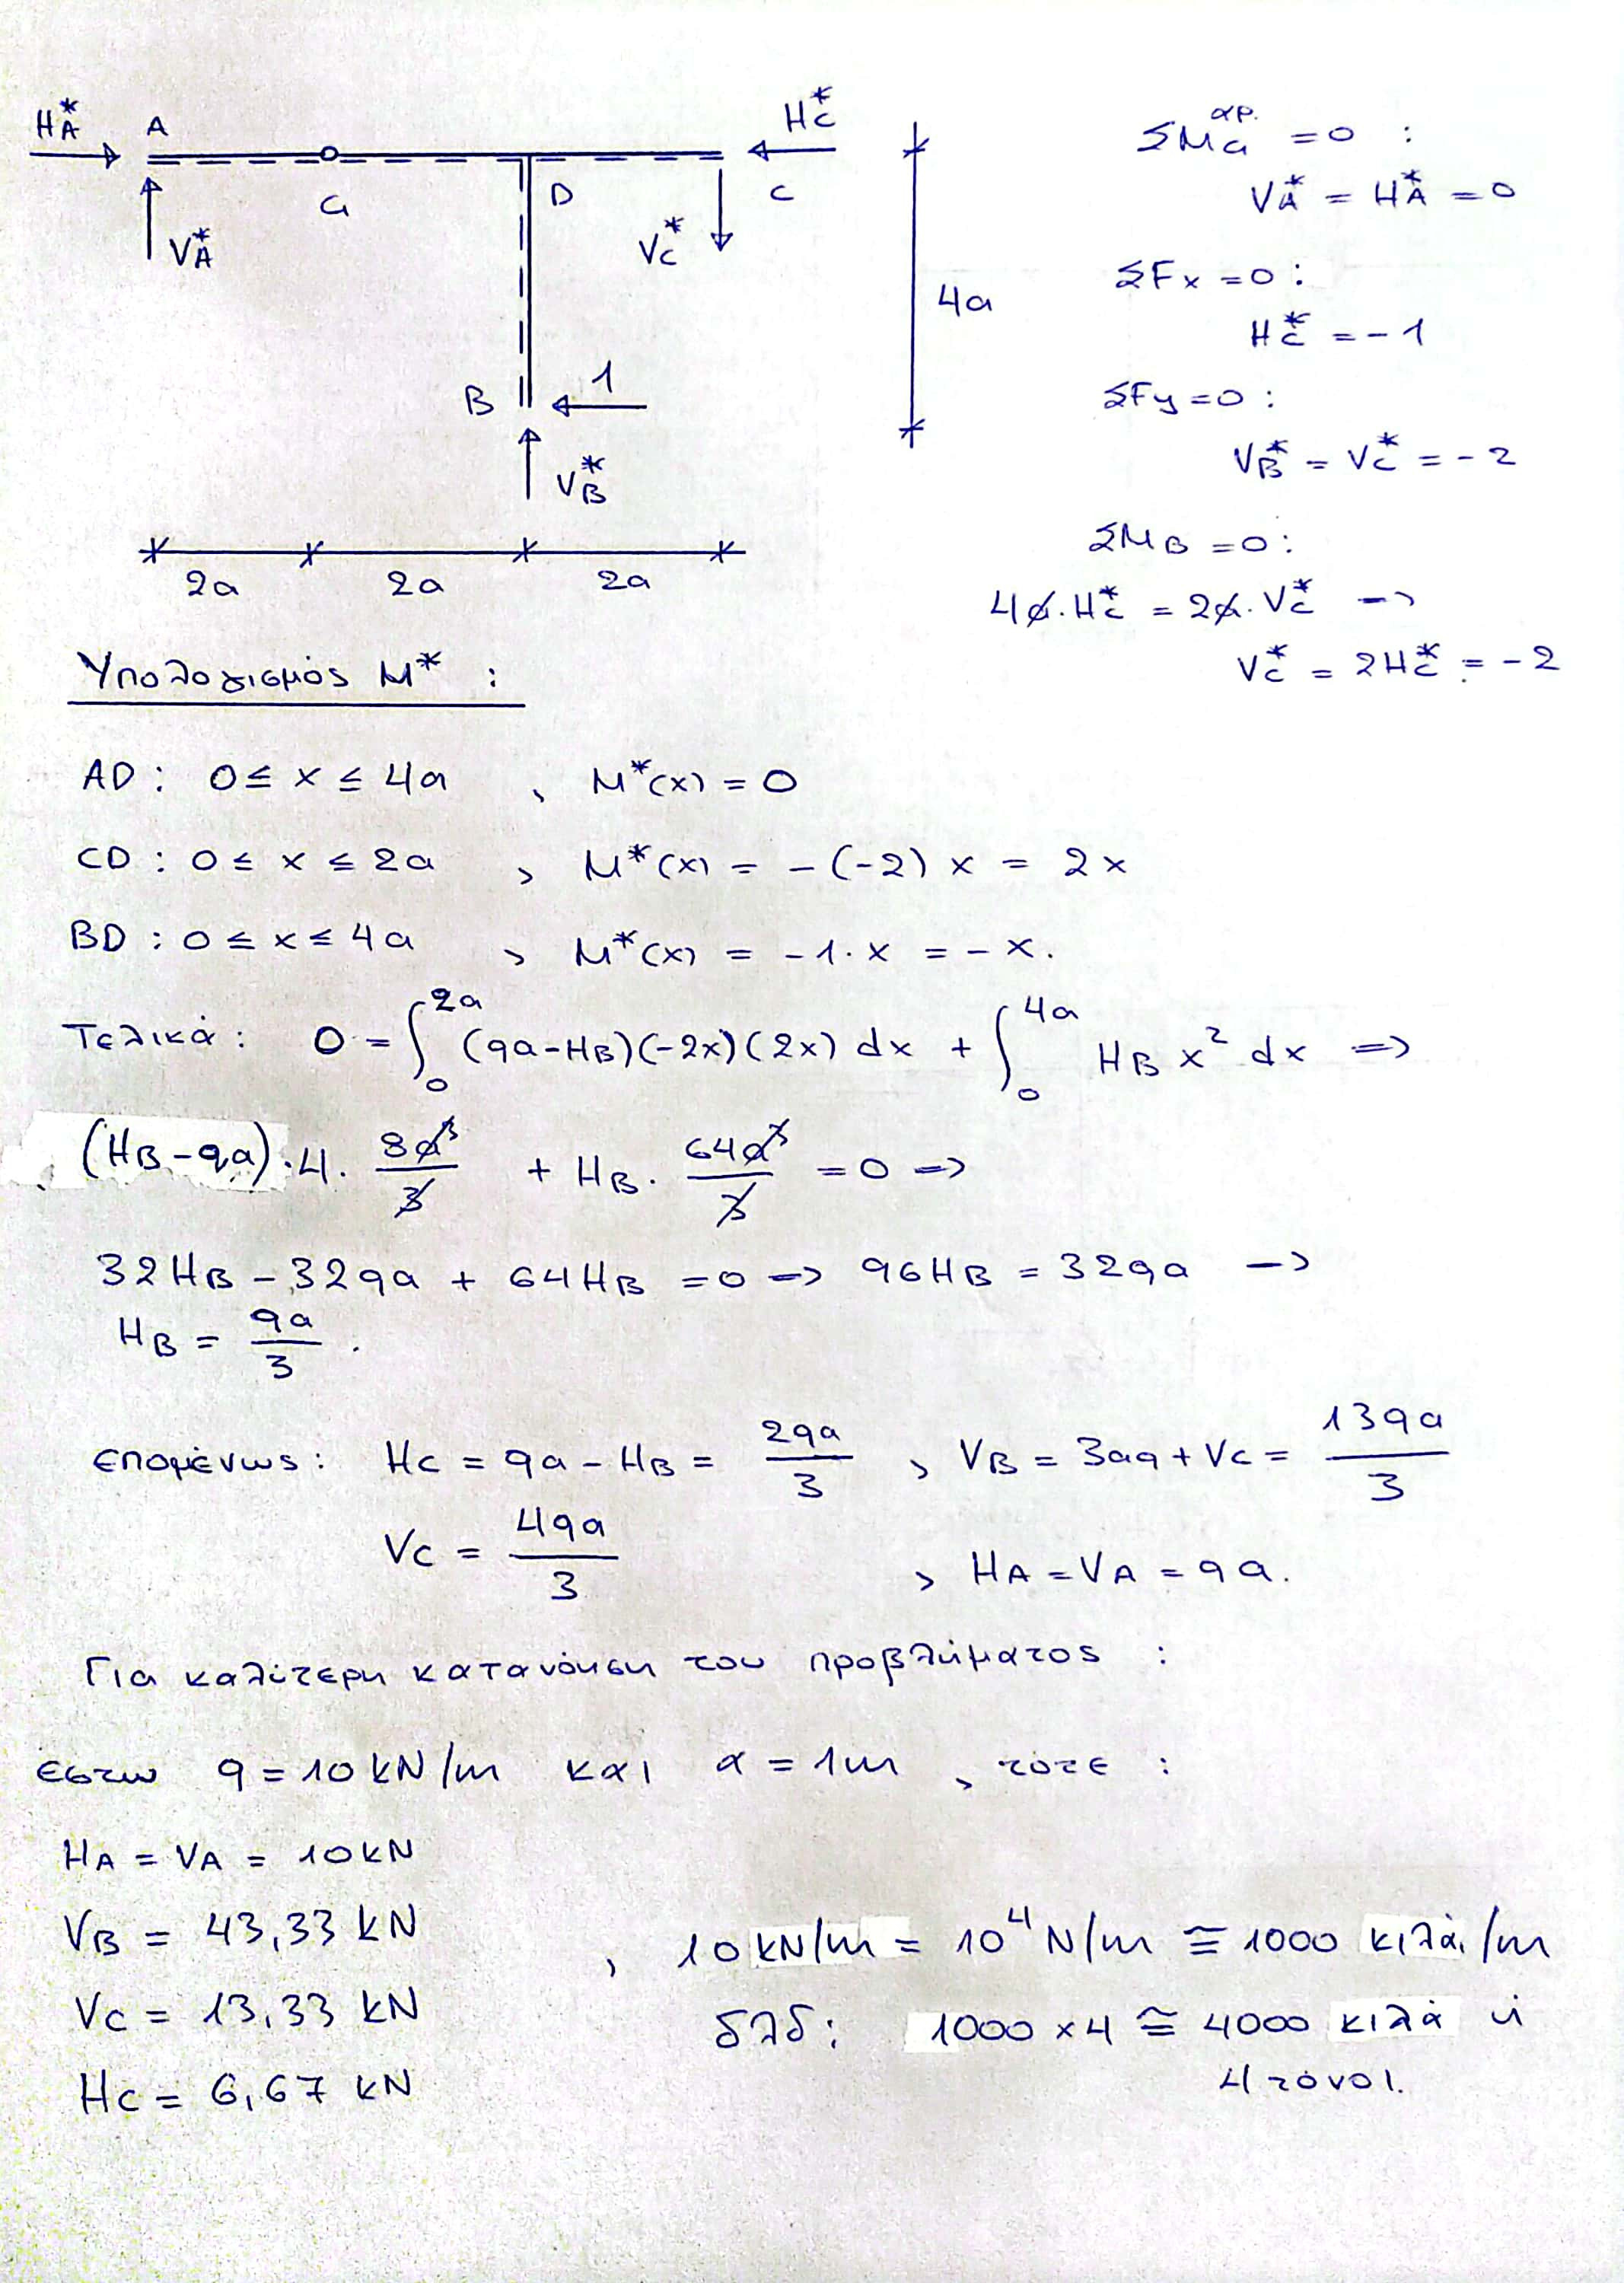 H*A A H*C
G D C
V*A V*C 4a
B 1
V*B
2a 2a 2a
ΣM_G^αρ. = 0 :
V*A = H*A = 0
ΣFx = 0 :
H*C = -1
ΣFy = 0 :
V*B = V*C = -2
ΣM_B = 0 :
4a·H*C = 2a·V*C →
V*C = 2H*C = -2
Υπολογισμός M* :
AD : 0 ≤ x ≤ 4a , M*(x) = 0
CD : 0 ≤ x ≤ 2a , M*(x) = -(-2) x = 2x
BD : 0 ≤ x ≤ 4a , M*(x) = -1·x = -x.
Τελικά : 0 = ∫_0^2a (qa-HB)(-2x)(2x) dx + ∫_0^4a HB x² dx ⇒
(HB-qa)·4· 8a³/3 + HB· 64a³/3 = 0 ⇒
32HB - 32qa + 64HB = 0 ⇒ 96HB = 32qa →
HB = qa/3 .
επομένως : HC = qa - HB = 2qa/3 , VB = 3aq + VC = 13qa/3
VC = 4qa/3 , HA = VA = qa.
Για καλύτερη κατανόηση του προβλήματος :
έστω q = 10 kN/m και α = 1m , τότε :
HA = VA = 10kN
VB = 43,33 kN , 10 kN/m = 10⁴ N/m ≅ 1000 κιλά/m
VC = 13,33 kN δλδ : 1000 x 4 ≅ 4000 κιλά ή
HC = 6,67 kN 4 τόνοι.